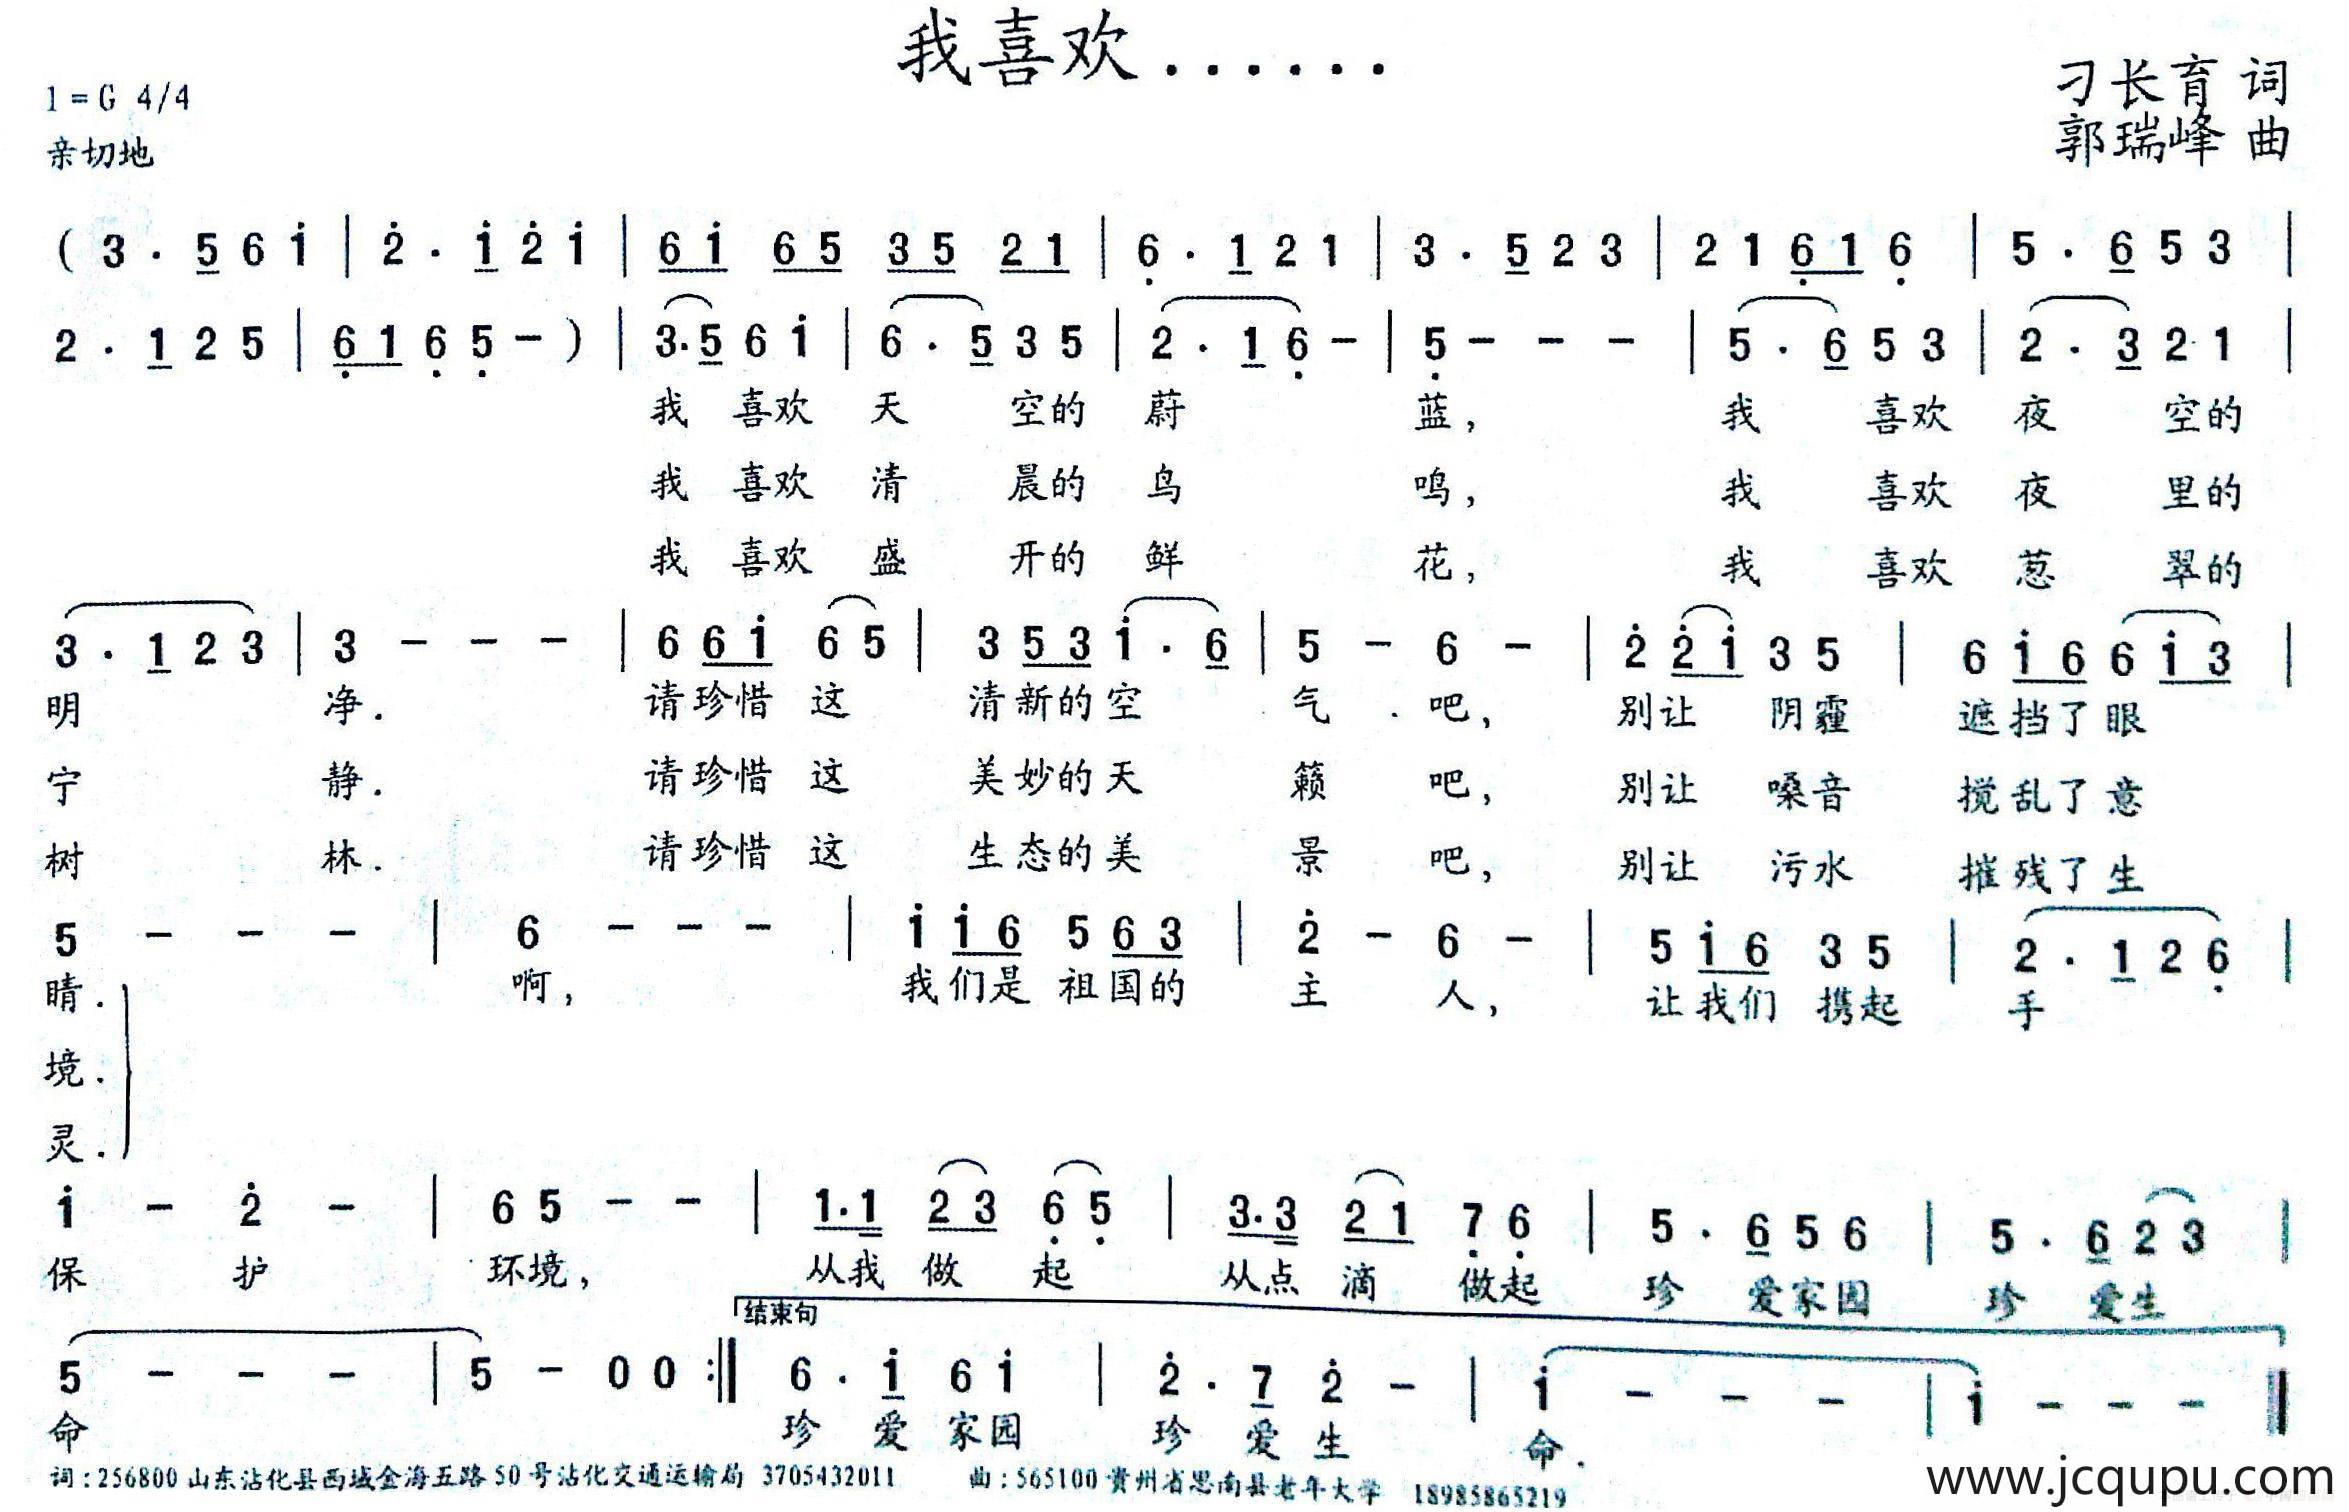 我喜欢......
1=G 4/4
刁长育 词
亲切地
郭瑞峰 曲
( 3 . 5 6 i | 2 . i 2 i | 6 i 6 5 3 5 2 1 | 6 . 1 2 1 | 3 . 5 2 3 | 2 1 6 1 6 | 5 . 6 5 3 |
2 . 1 2 5 | 6 1 6 5 - ) | 3 . 5 6 i | 6 . 5 3 5 | 2 . 1 6 - | 5 - - - | 5 . 6 5 3 | 2 . 3 2 1 |
我 喜欢 天 空的 蔚 蓝, 我 喜欢 夜 空的
我 喜欢 清 晨的 鸟 鸣, 我 喜欢 夜 里的
我 喜欢 盛 开的 鲜 花, 我 喜欢 葱 翠的
3 . 1 2 3 | 3 - - - | 6 6 i 6 5 | 3 5 3 i . 6 | 5 - 6 - | 2 2 i 3 5 | 6 i 6 6 i 3 |
明 净. 请珍惜 这 清新的空 气 吧, 别让 阴霾 遮挡了眼
宁 静. 请珍惜 这 美妙的天 籁 吧, 别让 嗓音 搅乱了意
树 林. 请珍惜 这 生态的美 景 吧, 别让 污水 摧残了生
5 - - - | 6 - - - | i i 6 5 6 3 | 2 - 6 - | 5 i 6 3 5 | 2 . 1 2 6 |
睛. 啊, 我们是 祖国的 主 人, 让我们 携起 手
境.
灵.
i - 2 - | 6 5 - - | 1 . 1 2 3 6 5 | 3 . 3 2 1 7 6 | 5 . 6 5 6 | 5 . 6 2 3 |
保 护 环境, 从我 做 起 从点 滴 做起 珍 爱家园 珍 爱生
结束句
5 - - - | 5 - 0 0 :| 6 . i 6 i | 2 . 7 2 - | i - - - | i - - - |
命 珍 爱 家园 珍 爱 生 命.
词:256800山东沾化县西城金海五路50号沾化交通运输局 3705432011 曲:565100贵州省思南县老年大学 18985865219
www.jcqupu.com